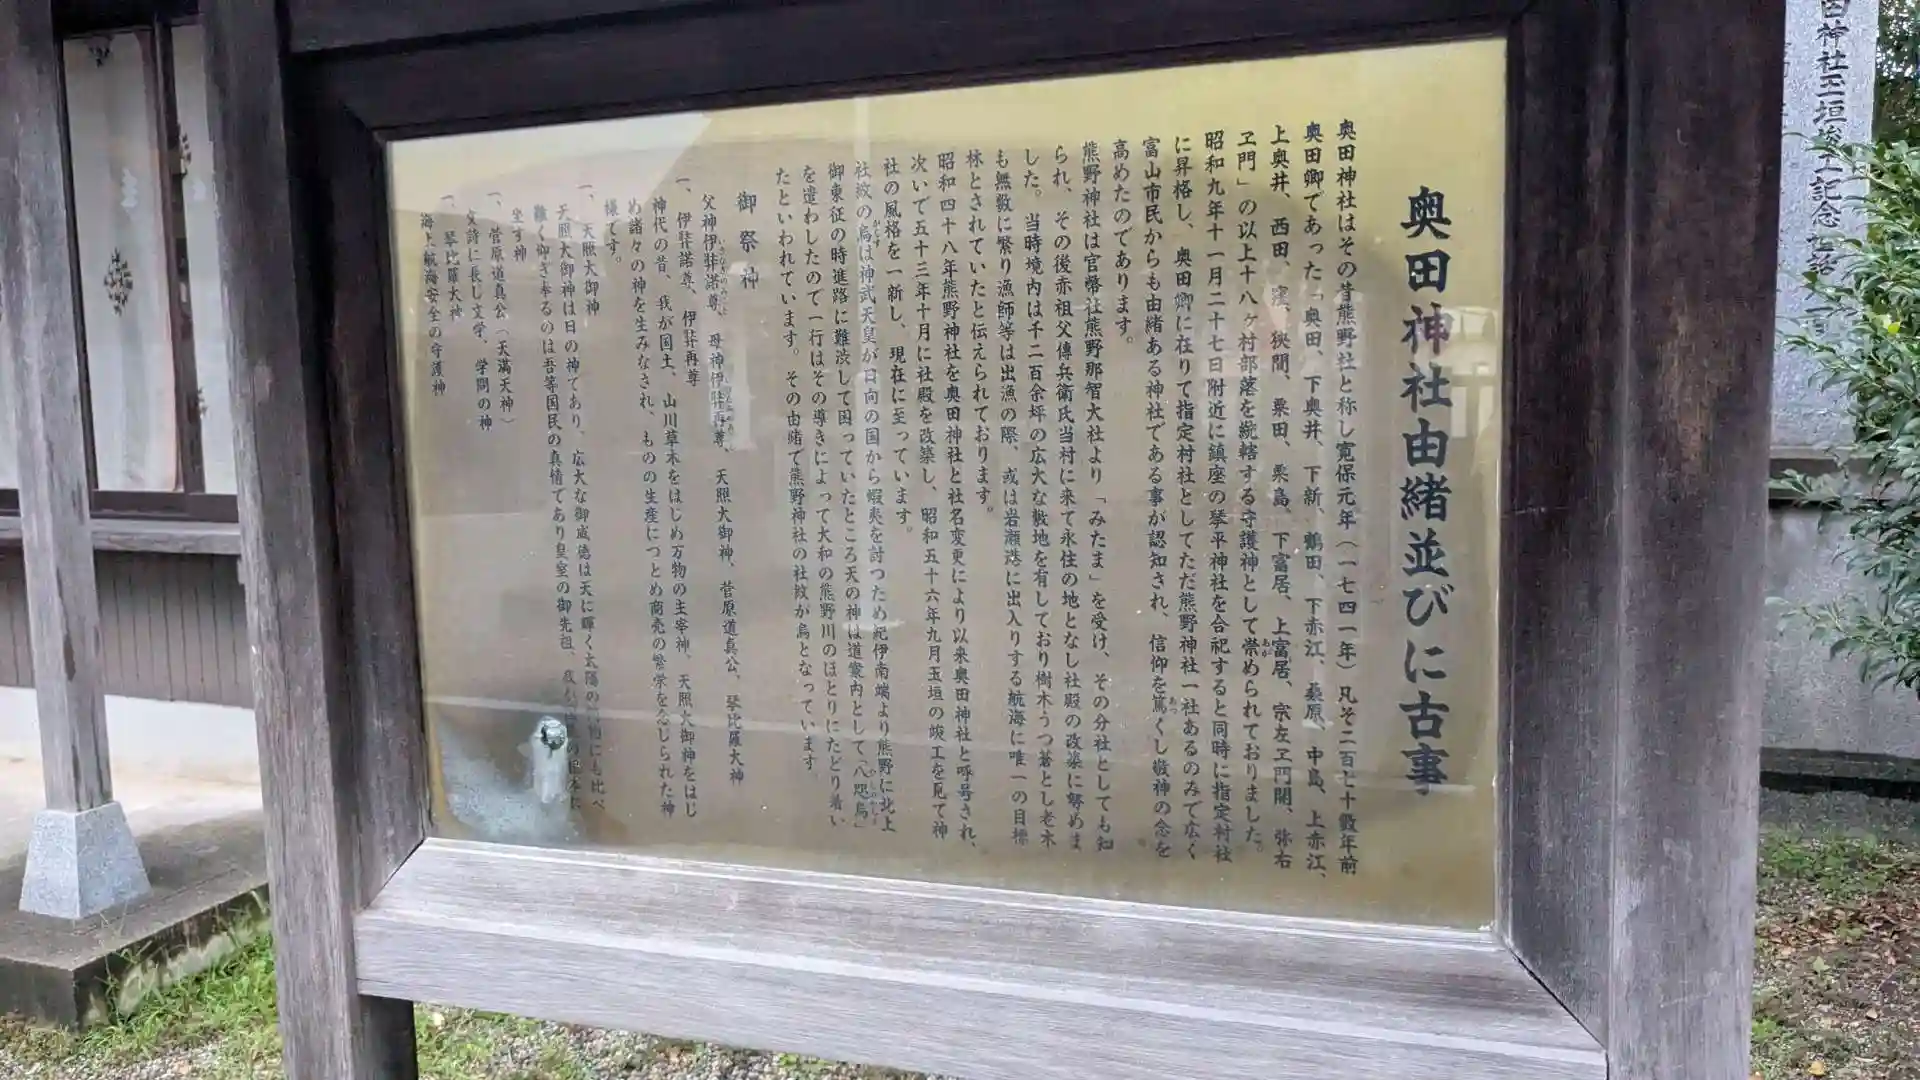 奥田神社由緒並びに古事
奥田神社はその昔熊野社と称し寛保元年(一七四一年)凡そ二百七十数年前
奥田郷であった「奥田、下奥井、下新、鶴田、下赤江、藜原、中島、上赤江、
上奥井、西田、窪、狭間、粟田、粟島、下富居、上富居、宗左ヱ門開、弥右
ヱ門」の以上十八ヶ村部落を統轄する守護神として崇められておりました。
昭和九年十一月二十七日附近に鎮座の琴平神社を合祀すると同時に指定村社
に昇格し、奥田郷に在りて指定村社としてただ熊野神社一社あるのみで広く
富山市民からも由緒ある神社である事が認知され、信仰を篤くし敬神の念を
高めたのであります。
熊野神社は官幣社熊野那智大社より「みたま」を受け、その分社としても知
られ、その後赤祖父傳兵衛氏当村に来て永住の地となし社殿の改築に努めま
した。当時境内は千二百余坪の広大な敷地を有しており樹木うつ蒼とし老木
も無数に繁り漁師等は出漁の際、或は岩瀬港に出入りする航海に唯一の目標
林とされていたと伝えられております。
昭和四十八年熊野神社を奥田神社と社名変更により以来奥田神社と呼号され、
次いで五十三年十月に社殿を改築し、昭和五十六年九月玉垣の竣工を見て神
社の風格を一新し、現在に至っています。
社紋の烏は神武天皇が日向の国から蝦夷を討つため紀伊南端より熊野に北上
御東征の時進路に難渋して困っていたところ天の神は道案内として「八咫烏」
を遣わしたので一行はその導きによって大和の熊野川のほとりにたどり着い
たといわれています。その由緒で熊野神社の社紋が烏となっています。
御祭神
父神伊弉諾尊、母神伊弉再尊、天照大御神、菅原道真公、琴比羅大神
一、伊弉諾尊、伊弉再尊
神代の昔、我が国土、山川草木をはじめ万物の主宰神、天照大御神をはじ
め諸々の神を生みなされ、ものの生産につとめ商売の繁栄を念じられた神
様です。
一、天照大御神
天照大御神は日の神であり、広大な御威徳は天に輝く太陽の 物にも比べ
難く仰ぎ奉るのは吾等国民の真情であり皇室の御先祖、我が
坐す神
一、菅原道真公(天満天神)
父詩に長し文学、学問の神
一、琴比羅大神
海上航海安全の守護神
田神社玉垣竣工記念